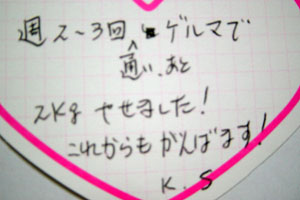 週2~3回 ゲルマで
通い、あと
2kg やせました!
これからも がんばます!
K. S